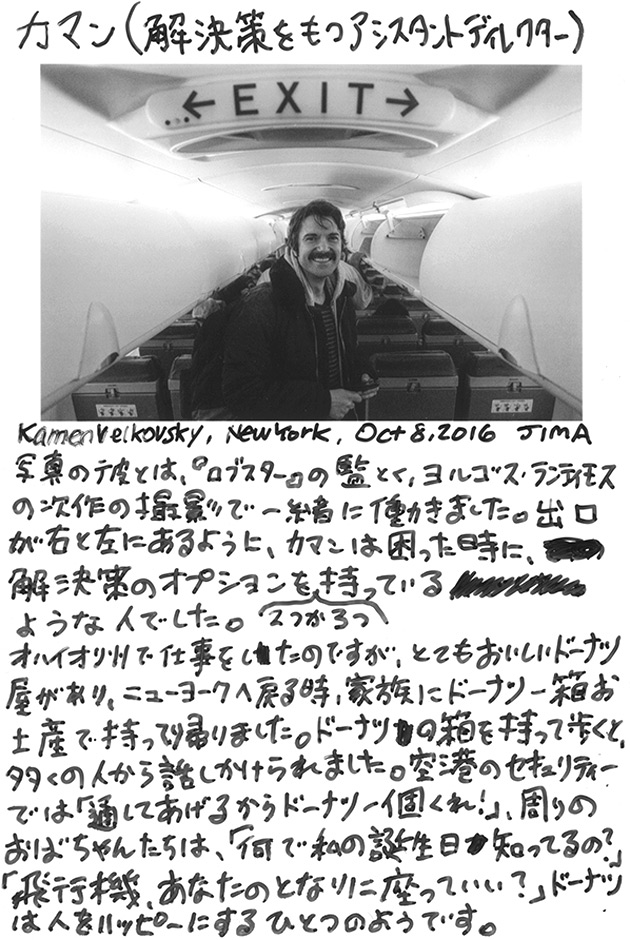 カマン(解決策をもつアシスタントディレクター)
← EXIT →
Kamen Velkovsky, New York, Oct 8, 2016 JIMA
写真の彼とは、『ロブスター』の監とく、ヨルゴス・ランティモス
の次作の撮影で一緒に働きました。出口
が右と左にあるように、カマンは困った時に、
解決策のオプションを持っている
ような人でした。 2つか3つ
オハイオ州で仕事をしたのですが、とてもおいしいドーナツ
屋があり、ニューヨークへ戻る時、家族にドーナツ一箱お
土産で持って帰りました。ドーナツの箱を持って歩くと、
多くの人から話しかけられました。空港のセキュリティー
では「通してあげるからドーナツ一個くれ!」、周りの
おばちゃんたちは、「何で私の誕生日知ってるの?」
「飛行機、あなたのとなりに座っていい?」ドーナツ
は人をハッピーにするひとつのようです。